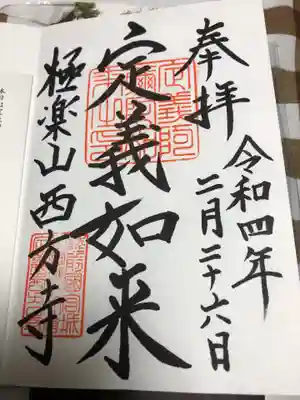 奉拝
令和四年
二月二十六日
定義如来
極楽山西方寺